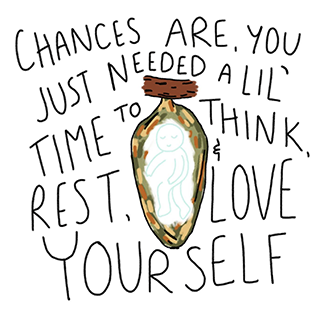 CHANCES ARE, YOU
JUST NEEDED A LIL'
TIME TO THINK,
REST, & LOVE
YOURSELF